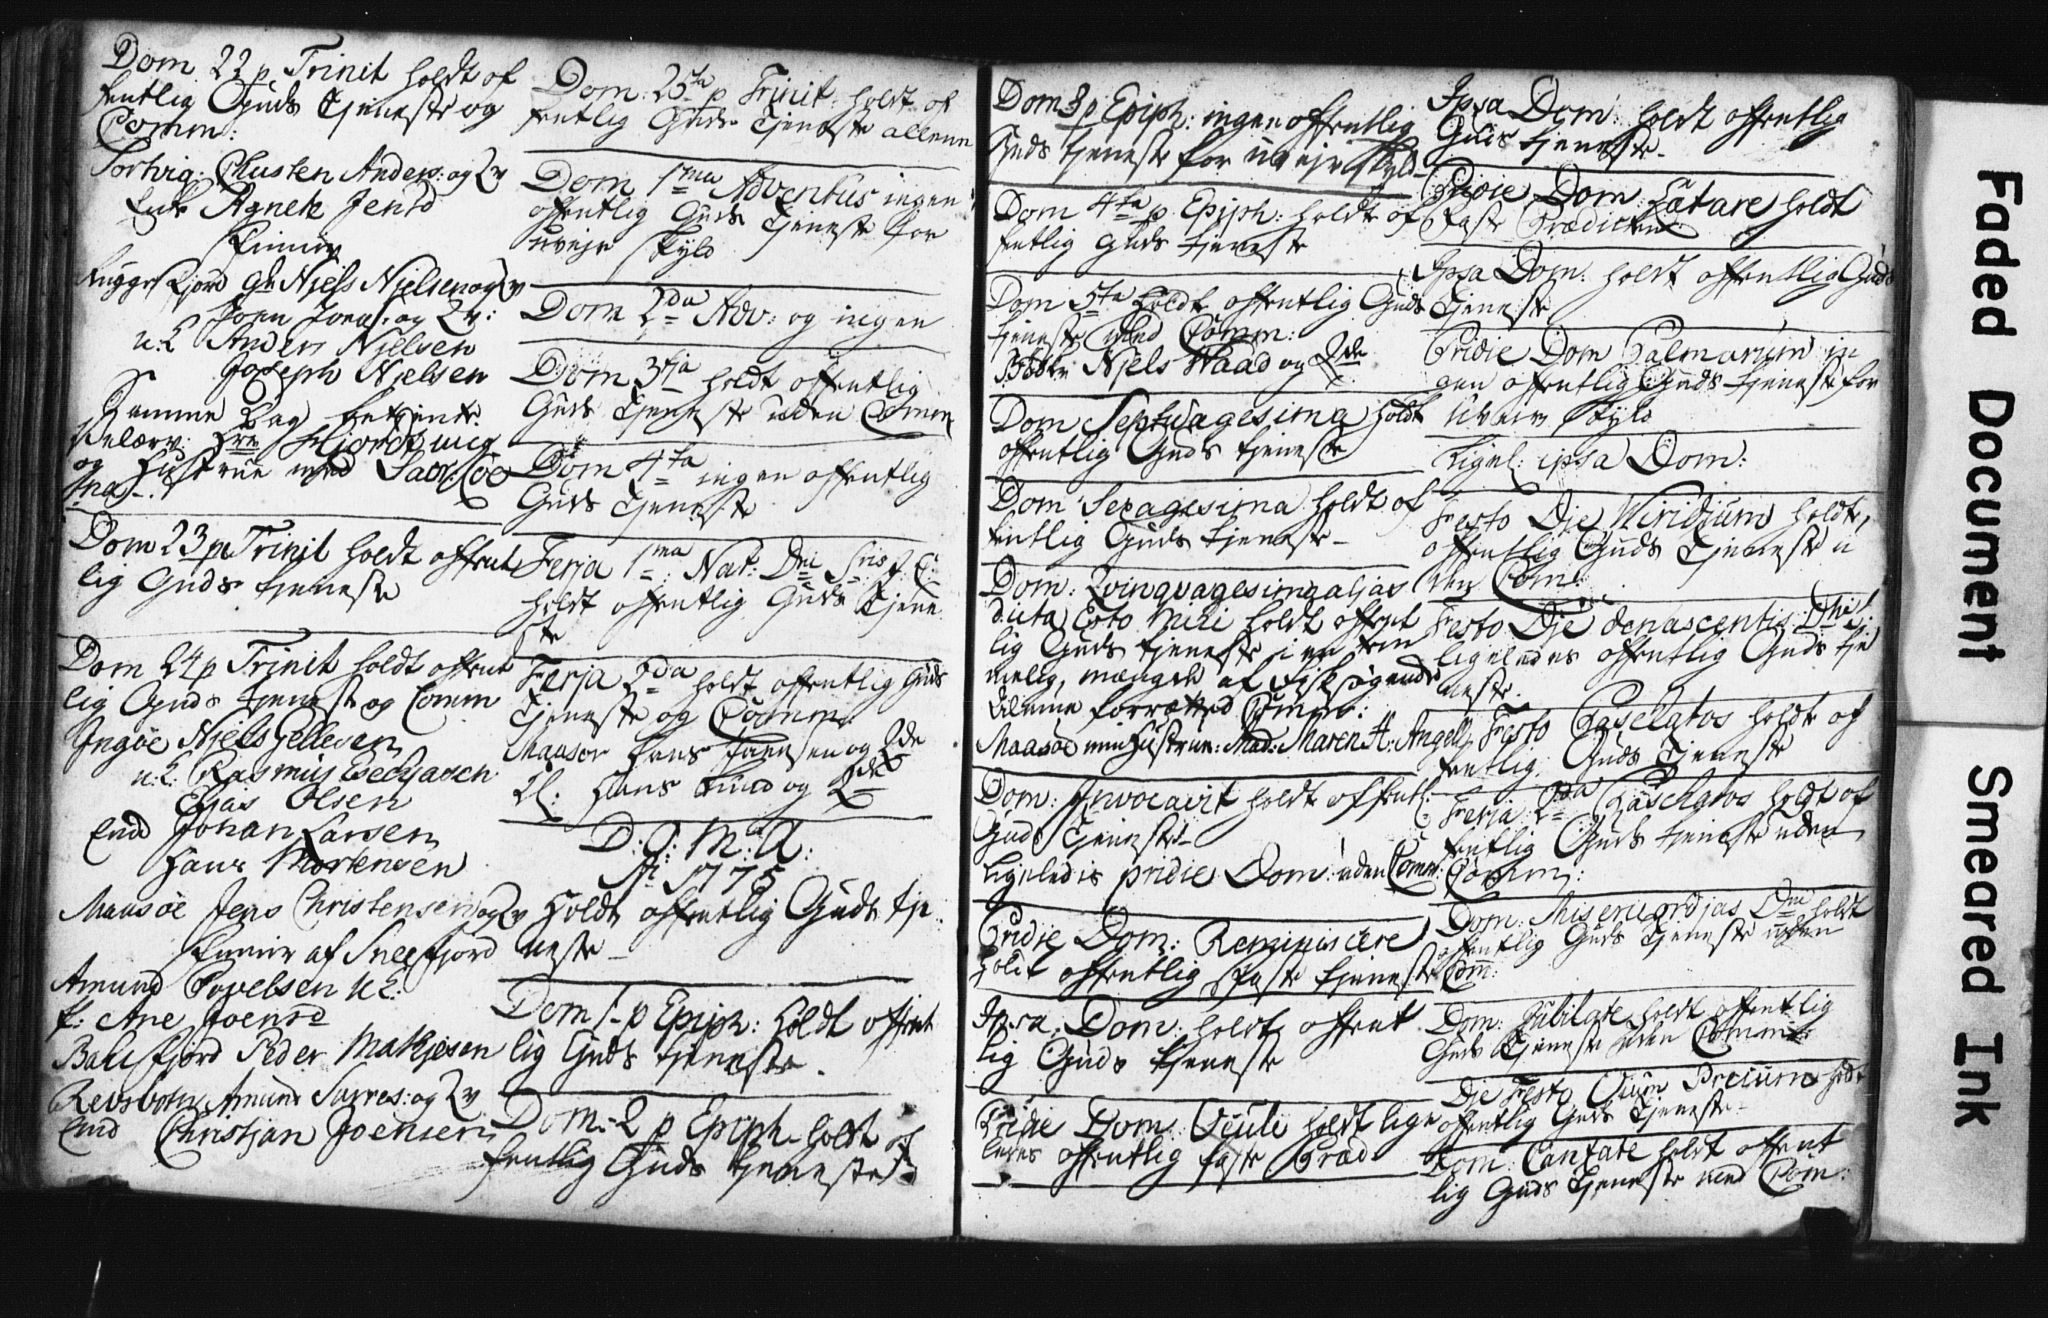 Dom 22 p Trinit holdt of
fentlig Guds tjeneste og
Comm:
Christen Anders: og Qv
Enke Agnete Jensd
Niels Nielsen og Qv
Joen Joens: og Qv:
u: k Anders Njelsen
Joseph Njelsen
Samme Dag betjente
Hre Hjordt mig
og Hustrue med Sacr: Cœ
næ -
Dom 23 p Trinit holdt offent
lig Guds tjeneste
Dom 24 p Trinit holdt offent
lig Guds tjeneste og Comm
Ingøe Niels Pellesen
u: k: Rasmus Esechjasen
Elias Olsen
End Johan Larsen
Hans Mortensen
Maasøe Jens Christensen og Qv
Finner af Sneefjord
Amund Povelsen u k:
f: Ane Joensd
Bakefjord Peder Mathjesen
Reisbotn Amund Sarres: og Qv
End Christjan Joensen
Dom: 25ta p Trinit: holdt of
fentlig Guds Tjeneste allene
Dom 1ma Adventus ingen
offentlig Guds Tjeneste for
uveirs skyld
Dom 2da Adv: og ingen
Dom 3tia holdt offentlig
Guds Tjeneste uden Comm
Dom 4ta ingen offentlig
Guds Tjeneste
Ferja 1ma: Nat: Dni
holdt offentlig Guds Tjene
ste
Ferja 2da holdt offentlig Guds
Tjeneste og Comm:
Maasøe Hans Joensen og Qde
Kl: Hans Lund og Qde
D: O: M: A:
Ao 1775
Holdt offentlig Guds tje
neste -
Dom 1 p Epiph: holdt offent
lig Guds tjeneste.
Dom. 2 p Epiph. holdt of
fentlig Guds tjeneste
Dom 3 p Epiph: ingen offentlig
Guds tjeneste for uveirs skyld
Dom 4ta p Epiph: holdt of
fentlig Guds tjeneste
Dom 5ta holdt offentlig Guds
tjeneste med Comm:
Niels Waad og Qde
Dom Septuagesima holdt
offentlig Guds tjeneste
Dom Sexagesima holdt of
fentlig Guds tjeneste -
Dom: Qvinqvagesima aljas
dicta Esto Mihi holdt offent
lig Guds tjeneste i en tem
melig mængde af Fisksøgende
Comm:
Maasøe min Hustrue: Mad: Maren A: Angell
Dom: Invocavit holdt offentl:
Guds Tjeneste -
Ligeledis pridie Dom: uden Comm:
Pridie Dom: Reminiscere
holdt offentlig Faste tjeneste
Ipsa Dom: holdt offent
lig Guds tjeneste
Pridie Dom: Oculi holdt lige
ledes offentlig faste Præd
Ipsa Dom: holdt offentlig
Guds tjeneste -
Pridie Dom: Lætare holdt
Faste Prædicken
Ipsa Dom: holdt offentlig Guds
Tjeneste
Pridie Dom Palmarum in
gen offentlig Guds tjeneste for
Uveirs skyld
Ligel: ipsa Dom:
Festo Die Viridium holdt
offentlig Guds Tjeneste u
den Com:
Festo Die
ligeledes offentlig Guds tje
neste.
Festo Paschatos holdt of
fentlig Guds Tjeneste
Ferja 2da Paschatos holdt of
fentlig Guds tjeneste uden
Comm:
Dom: Misericordjas Dni holdt
offentlig Guds Tjeneste uden
Com:
Dom: Jubilate holdt offentlig
Guds Tjeneste uden Comm:
Die Festo Precum holdt
offentlig Guds Tjeneste -
Dom: Cantate holdt offent
lig Guds Tjeneste med Com:
Faded Document
Smeared Ink